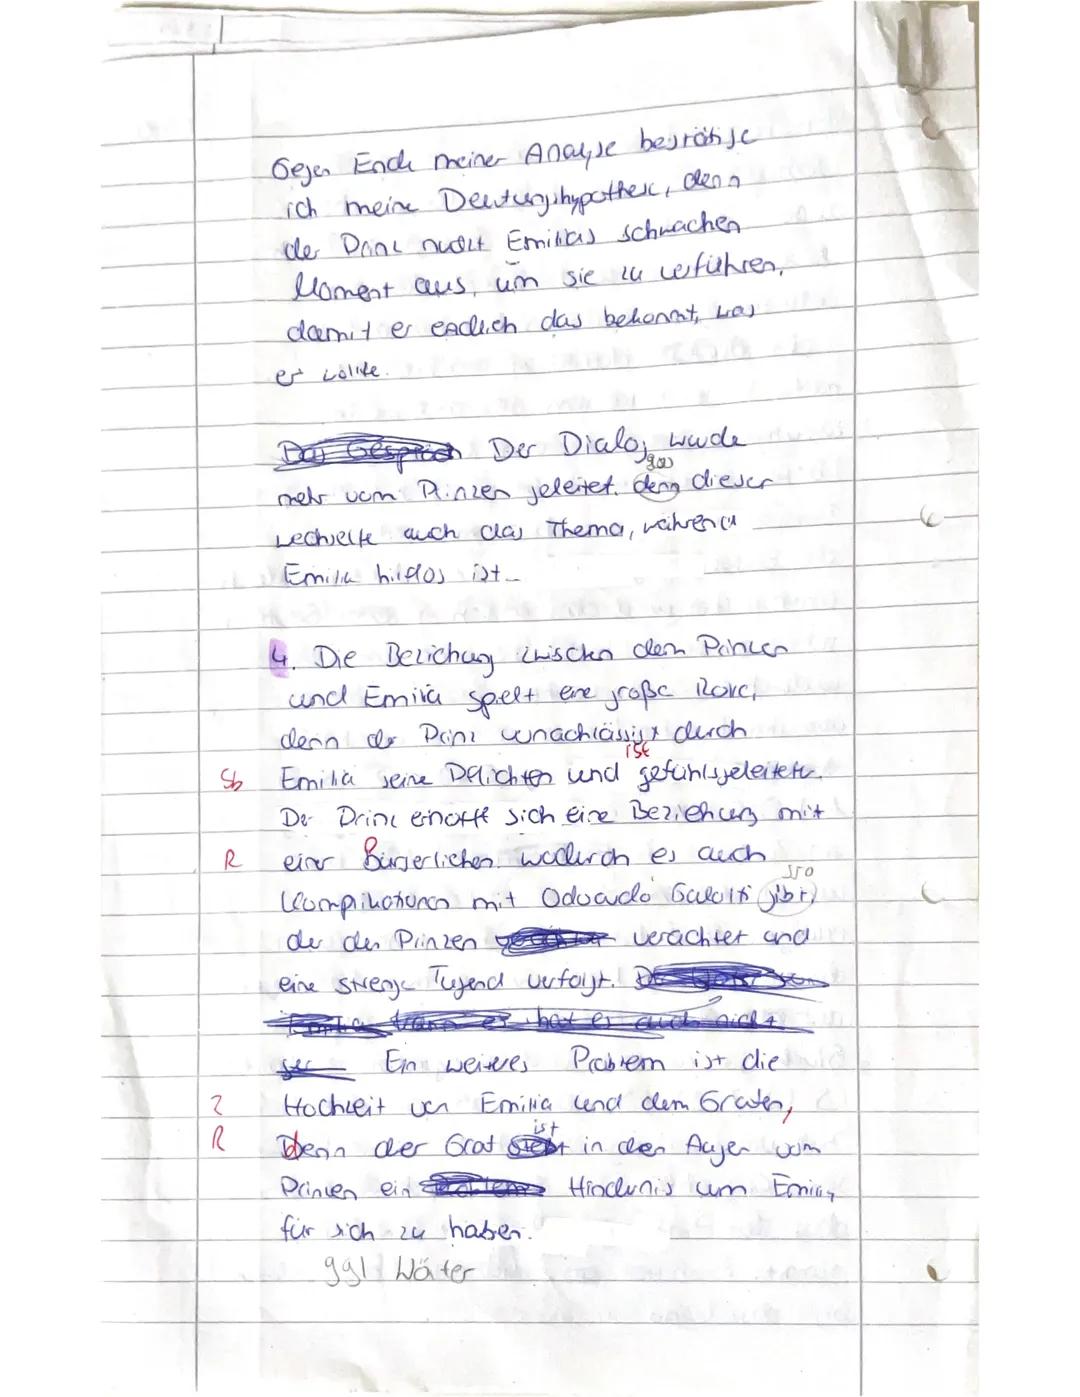 Gegen Ende meiner Analyse bestätige
ich meine Deutungshypothese, denn
der Prinz nutzt Emilias schwachen
Moment aus, um sie zu verführen,
damit er endlich das bekommt, was
er wollte.
Das Gespräch Der Dialog wurde
mehr vom Prinzen geleitet. denn dieser
wechselte auch das Thema, während
Emilia hilflos ist.
4. Die Beziehung zwischen dem Prinzen
und Emilia spielt eine große Rolle,
denn der Prinz vernachlässigt durch
ist
Sb Emilia seine Pflichten und gefühlsgeleitet.
Der Prinz erhofft sich eine Beziehung mit
R einer Bürgerlichen wodurch es auch
Komplikationen mit Odoardo Galotti gibt,
der den Prinzen verachtet und
eine strenge Tugend verfolgt.
Emilia hat er auch nicht
Ein weiteres Problem ist die
Z Hochzeit von Emilia und dem Grafen,
ist
R Denn der Graf steht in den Augen vom
Prinzen ein Hindernis um Emilia
für sich zu haben.
ggl Wörter